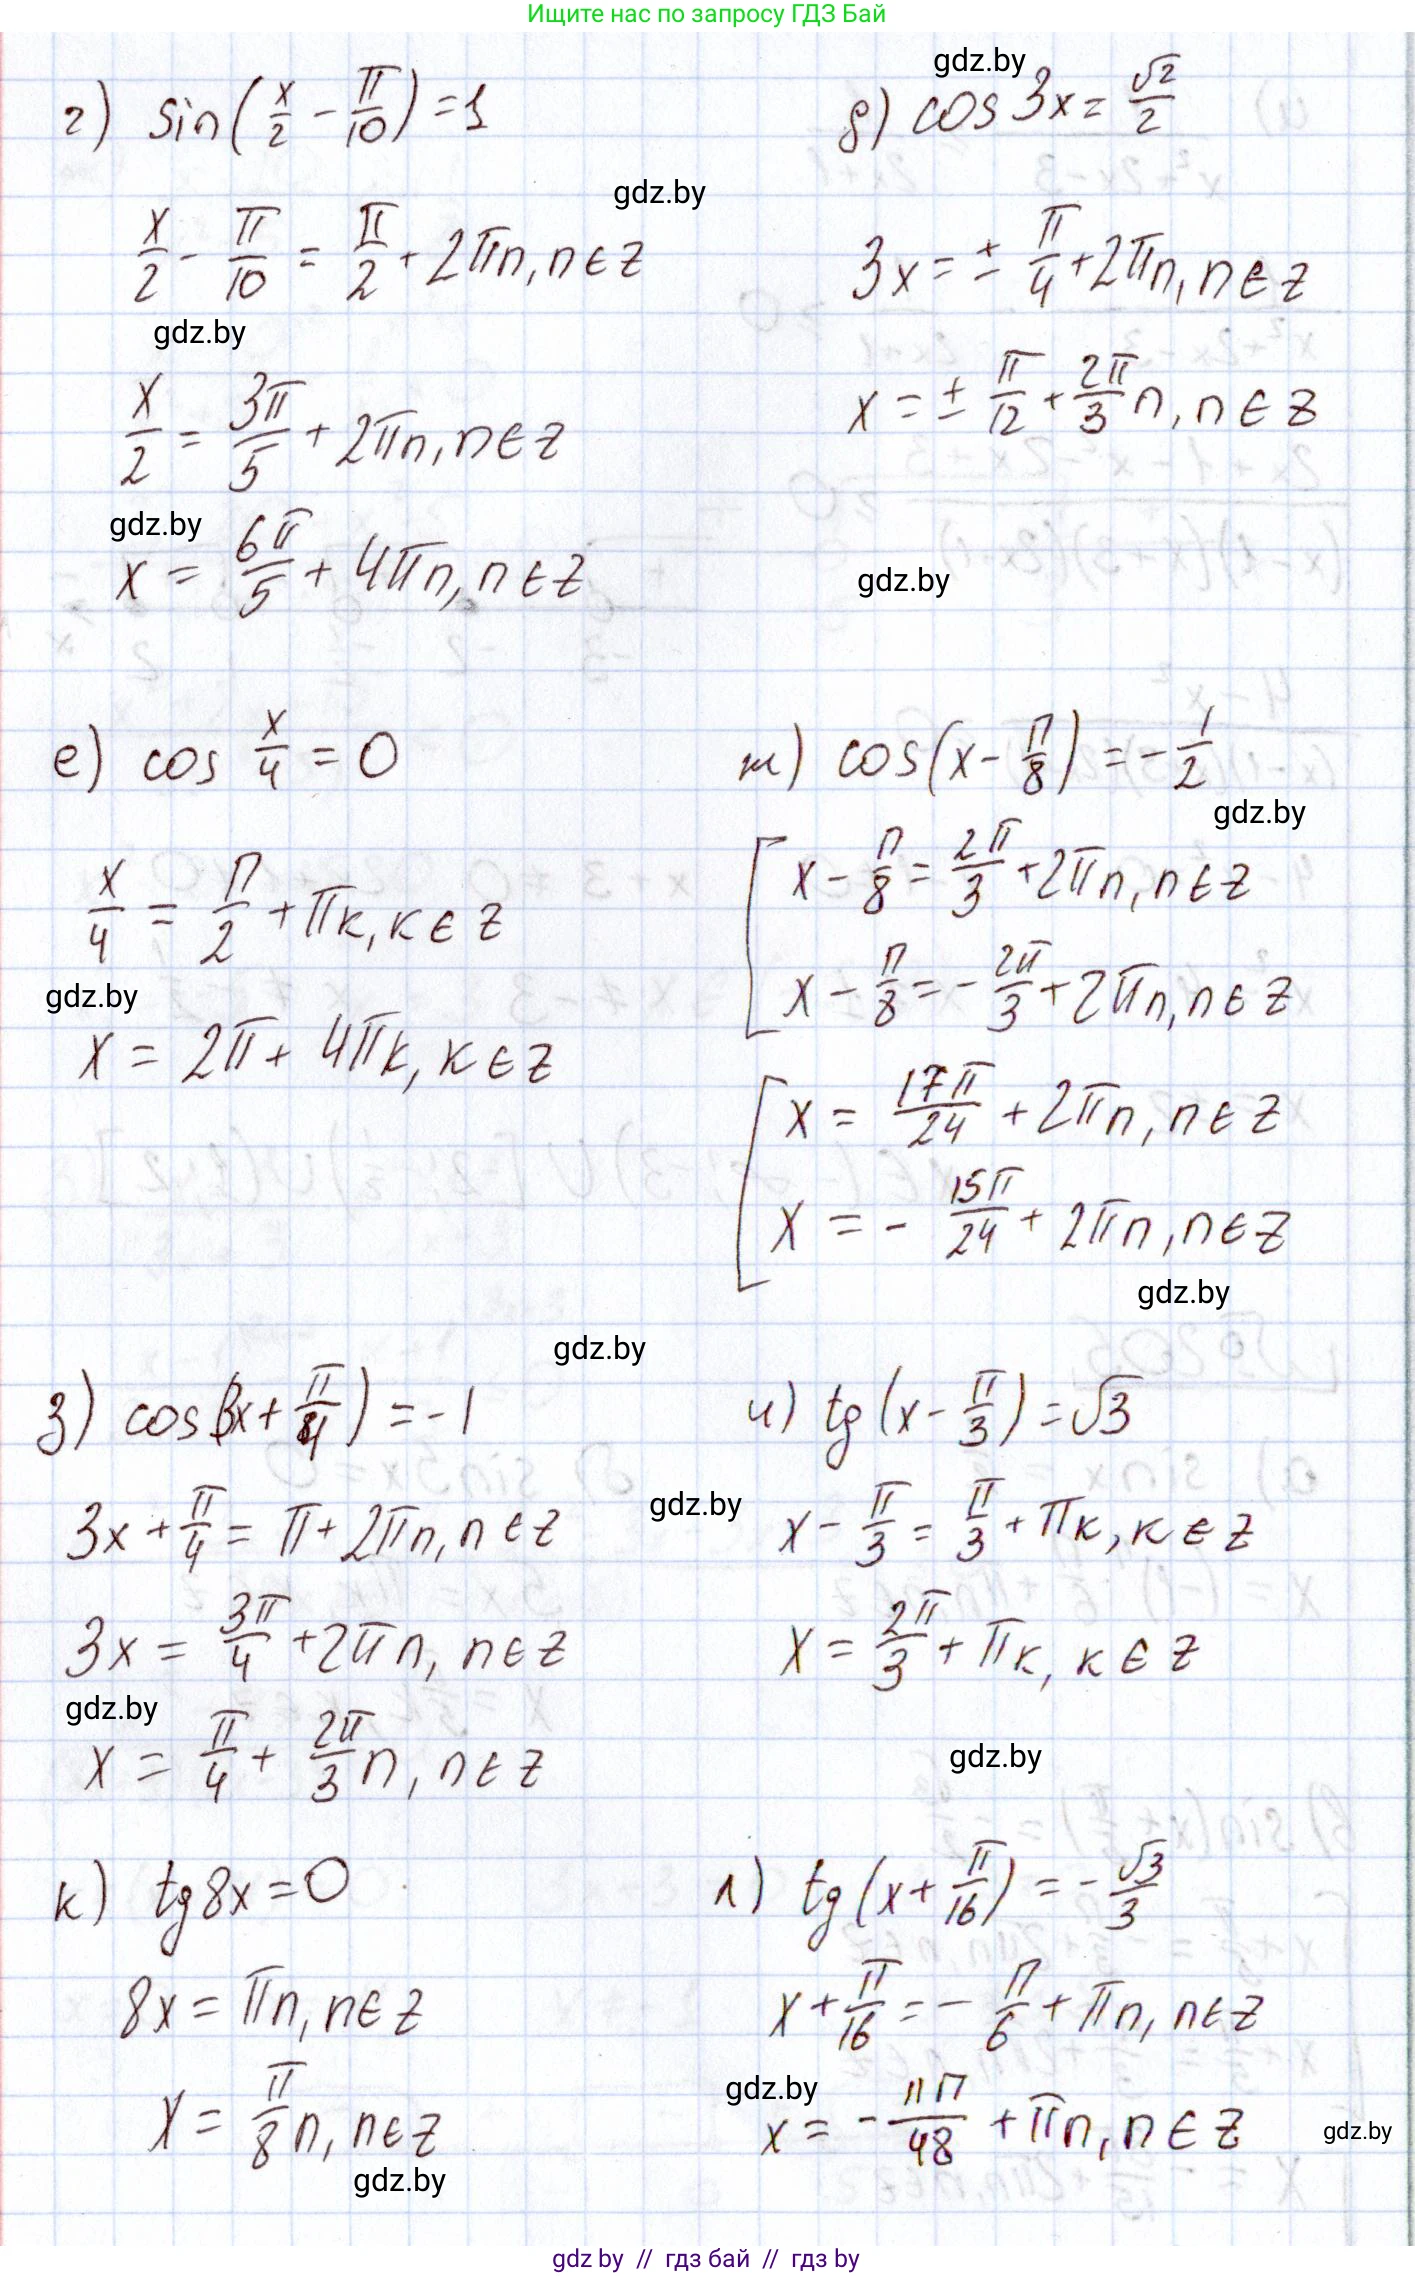 Ищите нас по запросу ГДЗ Бай
г) sin(x/2 - π/10) = 1
gdz.by
x/2 - π/10 = π/2 + 2πn, n ∈ z
gdz.by
x/2 = 3π/5 + 2πn, n ∈ z
gdz.by
x = 6π/5 + 4πn, n ∈ z
gdz.by
д) cos 3x = √2/2
3x = ± π/4 + 2πn, n ∈ z
x = ± π/12 + 2π/3 n, n ∈ z
gdz.by
е) cos x/4 = 0
x/4 = π/2 + πk, k ∈ z
gdz.by
x = 2π + 4πk, k ∈ z
ж) cos(x - π/8) = - 1/2
gdz.by
x - π/8 = 2π/3 + 2πn, n ∈ z
x - π/8 = - 2π/3 + 2πn, n ∈ z
x = 17π/24 + 2πn, n ∈ z
x = - 15π/24 + 2πn, n ∈ z
gdz.by
gdz.by
з) cos(3x + π/4) = -1
3x + π/4 = π + 2πn, n ∈ z
3x = 3π/4 + 2πn, n ∈ z
gdz.by
x = π/4 + 2π/3 n, n ∈ z
и) tg(x - π/3) = √3
gdz.by
x - π/3 = π/3 + πk, k ∈ z
x = 2π/3 + πk, k ∈ z
gdz.by
к) tg 8x = 0
8x = πn, n ∈ z
x = π/8 n, n ∈ z
gdz.by
л) tg(x + π/16) = - √3/3
x + π/16 = - π/6 + πn, n ∈ z
gdz.by
x = - 11π/48 + πn, n ∈ z
gdz.by
gdz by // гдз бай // гдз by